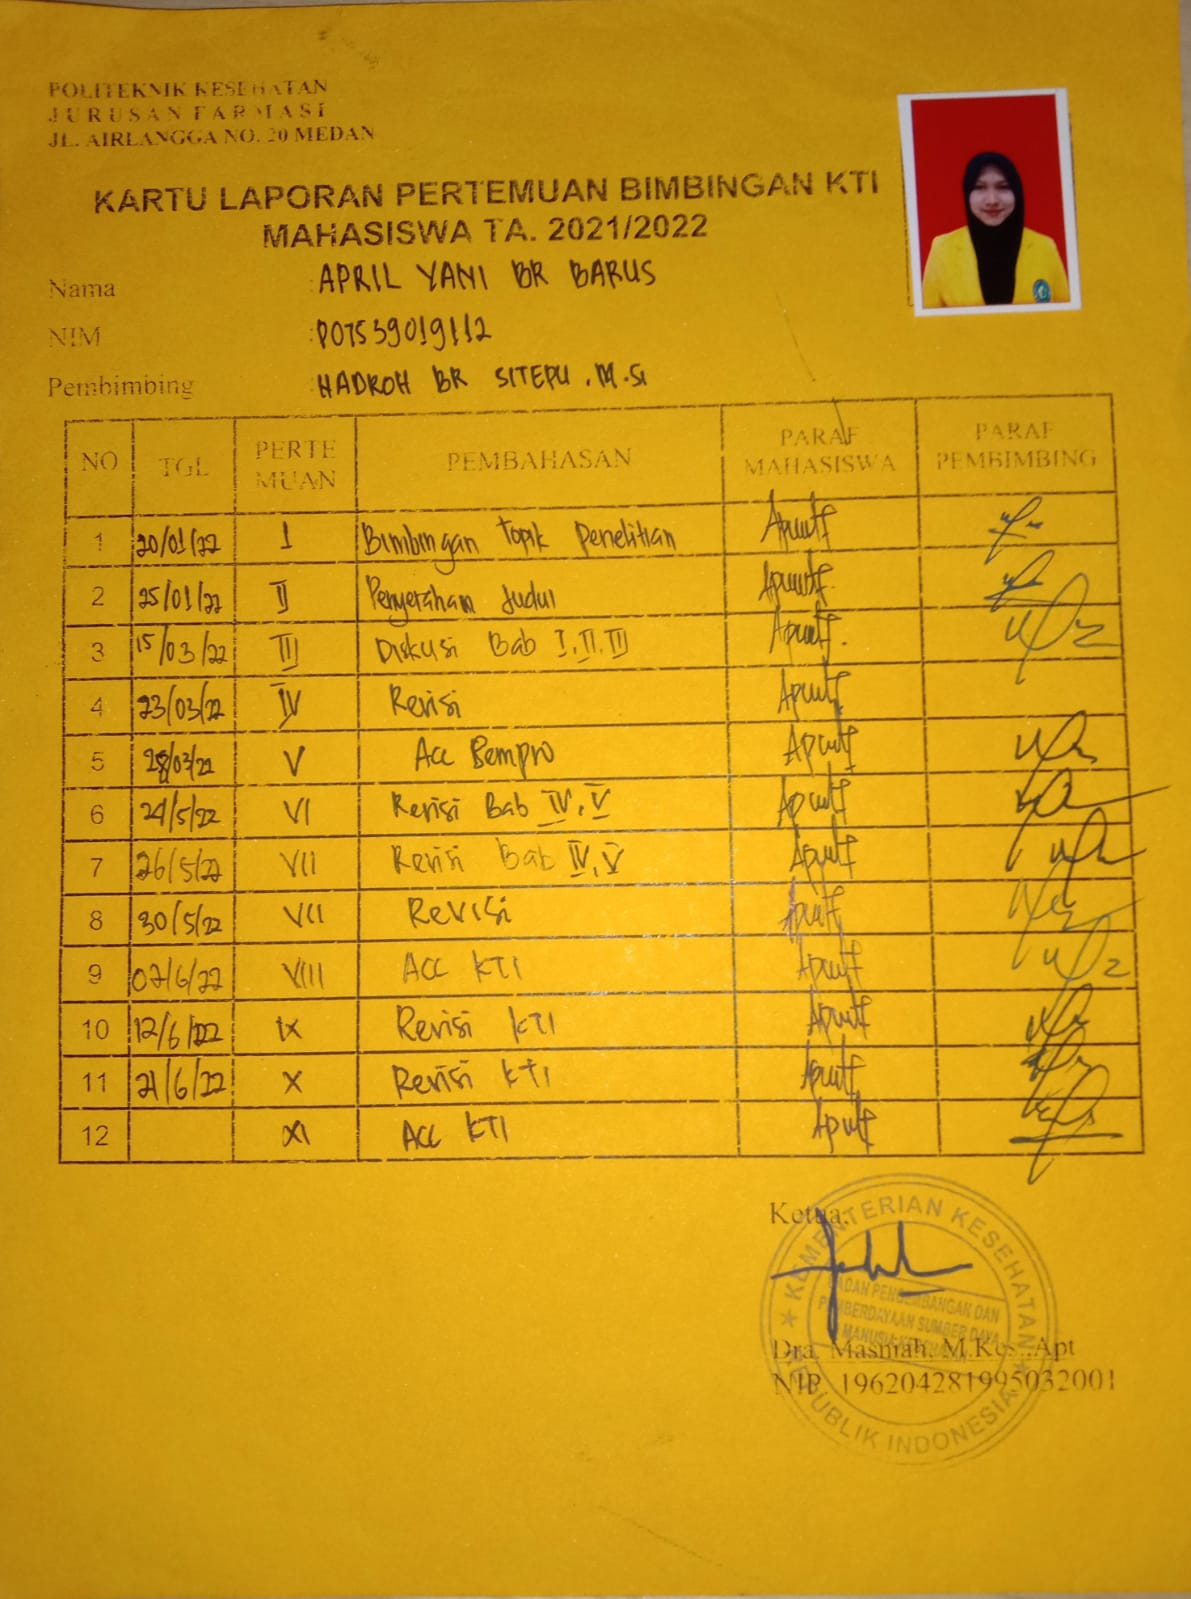 POLITEKNIK KESEHATAN
JURUSAN FARMASI
JL. AIRLANGGA NO. 20 MEDAN
KARTU LAPORAN PERTEMUAN BIMBINGAN KTI
MAHASISWA TA. 2021/2022
Nama : APRIL YANI BR BARUS
NIM : P07539019112
Pembimbing : HADROH BR SITEPU, M.Si
NO TGL PERTE MUAN PEMBAHASAN PARAF MAHASISWA PARAF PEMBIMBING
1 20/01/22 I Bimbingan Topik Penelitian
2 25/01/22 II Penyerahan Judul
3 15/03/22 III Diskusi Bab I, II, III
4 23/03/22 IV Revisi
5 28/03/22 V Acc Sempro
6 24/5/22 VI Revisi Bab IV, V
7 26/5/22 VII Revisi Bab IV, V
8 30/5/22 VII Revisi
9 VIII Acc KTI
10 12/6/22 IX Revisi KTI
11 21/6/22 X Revisi KTI
12 XI Acc KTI
Ketua,
KEMENTERIAN KESEHATAN
BADAN PENGEMBANGAN DAN
PEMBERDAYAAN SUMBER DAYA
MANUSIA KESEHATAN
REPUBLIK INDONESIA
Dra. Masniah, M.Kes., Apt
NIP. 196204281995032001